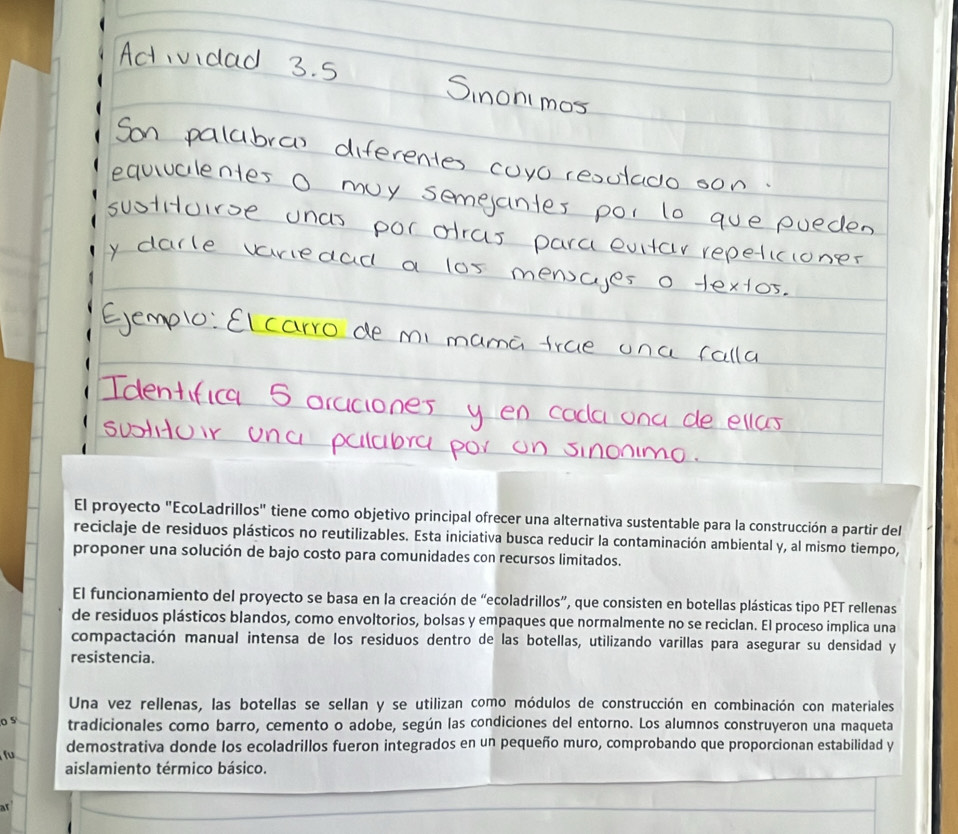 Actividad 3.5
Sinonimos
Son palabras diferentes cuyo resultado son.
equivalentes o muy semejantes por lo que pueden
sustituirse unas por otras para evitar repeticiones
y darle variedad a los mensajes o textos.
Ejemplo: El carro de mi mamá trae una falla
Identifica 5 oraciones y en cada una de ellas
sustituir una palabra por un sinonimo.
El proyecto "EcoLadrillos" tiene como objetivo principal ofrecer una alternativa sustentable para la construcción a partir del
reciclaje de residuos plásticos no reutilizables. Esta iniciativa busca reducir la contaminación ambiental y, al mismo tiempo,
proponer una solución de bajo costo para comunidades con recursos limitados.
El funcionamiento del proyecto se basa en la creación de “ecoladrillos”, que consisten en botellas plásticas tipo PET rellenas
de residuos plásticos blandos, como envoltorios, bolsas y empaques que normalmente no se reciclan. El proceso implica una
compactación manual intensa de los residuos dentro de las botellas, utilizando varillas para asegurar su densidad y
resistencia.
Una vez rellenas, las botellas se sellan y se utilizan como módulos de construcción en combinación con materiales
tradicionales como barro, cemento o adobe, según las condiciones del entorno. Los alumnos construyeron una maqueta
demostrativa donde los ecoladrillos fueron integrados en un pequeño muro, comprobando que proporcionan estabilidad y
aislamiento térmico básico.